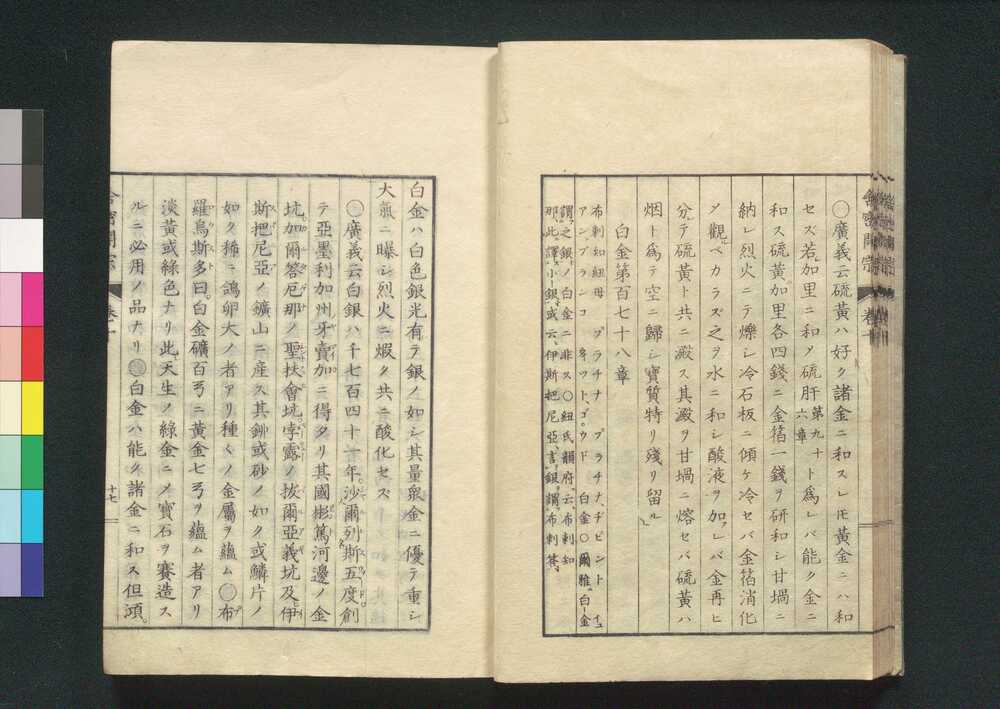 ◯廣義云硫黃ハ好ク諸金ニ和スレ𪜈黃金ニハ和
セズ若加里ニ和〆硫肝第九十六章ト爲レバ能ク金ニ
和ス硫黃加里各四錢ニ金箔一錢ヲ研和シ甘堝ニ
納レ烈火ニテ爍シ冷石板ニ傾ケ冷セバ金箔消化
〆觀ベカラズ之ヲ水ニ和シ酸液ヲ加フレバ金再ヒ
分テ硫黃ト共ニ澱ス其澱ヲ甘堝ニ熔セバ硫黃ハ
烟ト爲テ空ニ歸シ寶質特リ殘リ留ル
白金第百七十八章
布剌知紐母 プラチナ プラチナヂピント
アンブランコ 白金◯爾雅白金
謂之銀ノ白金ニ非ス◯紐氏韻府云布剌知
那此譯小銀或云伊斯把尼亞言銀謂布剌荅
白金ハ白色銀光有テ銀ノ如シ其量衆金ニ優テ重シ
大氣ニ曝シ烈火ニ煆ク共ニ酸化セス
◯廣義云白銀ハ千七百四十一年沙爾列斯五度創
テ亞墨利加州牙賣加ニ得タリ其國彬篤河邊ノ金
坑加爾荅厄那ノ聖扶會坑孛露ノ拔爾亞義坑及伊
斯把尼亞ノ鑛山ニ産ス其鉚或砂ノ如ク或鱗片ノ
如ク稀ニ鴿卵大ノ者アリ種〱ノ金屬ヲ蘊ム◯布
羅烏斯多曰白金礦百弓ニ黃金七弓ヲ蘊ム者アリ
淡黃或綠色ナリ此天生ノ綠金ニ〆寶石ヲ賽造ス
ルニ必用ノ品ナリ◯白金ハ能ク諸金ニ和ス但頭
十七